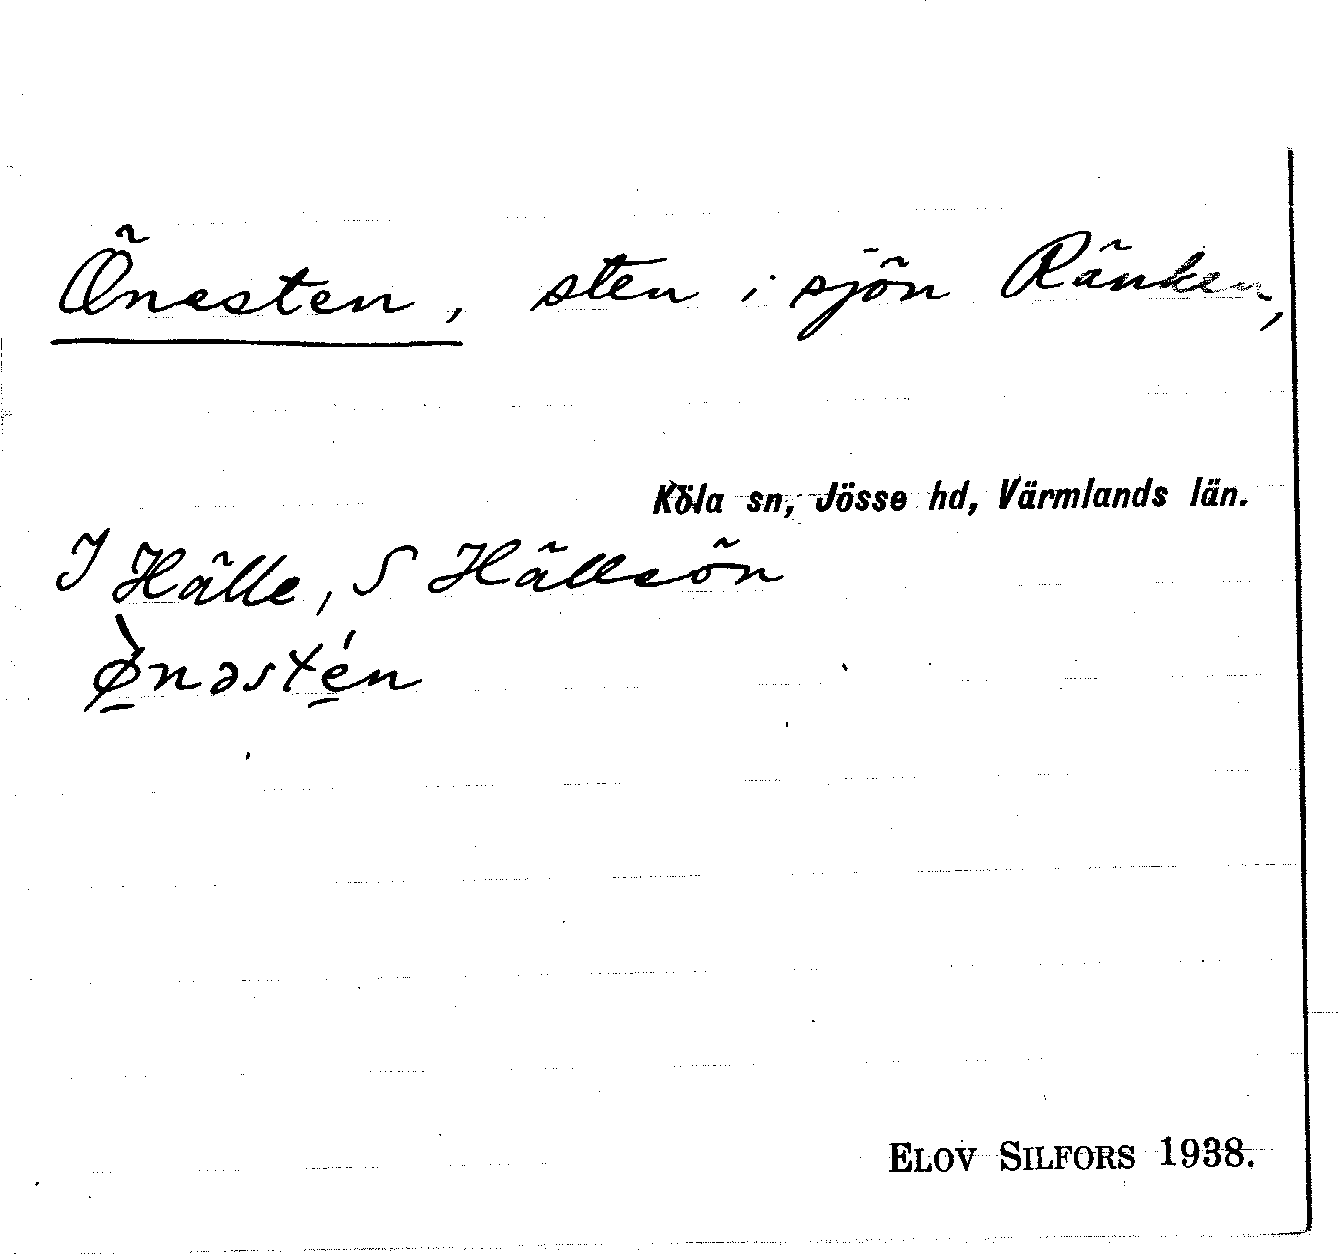 Önesten, sten i sjön Ränken,
Köla sn, Jösse hd, Värmlands län.
I Hälle, S Hällsön
ø̠̀nəsté̠n
ELOV SILFORS 1938.